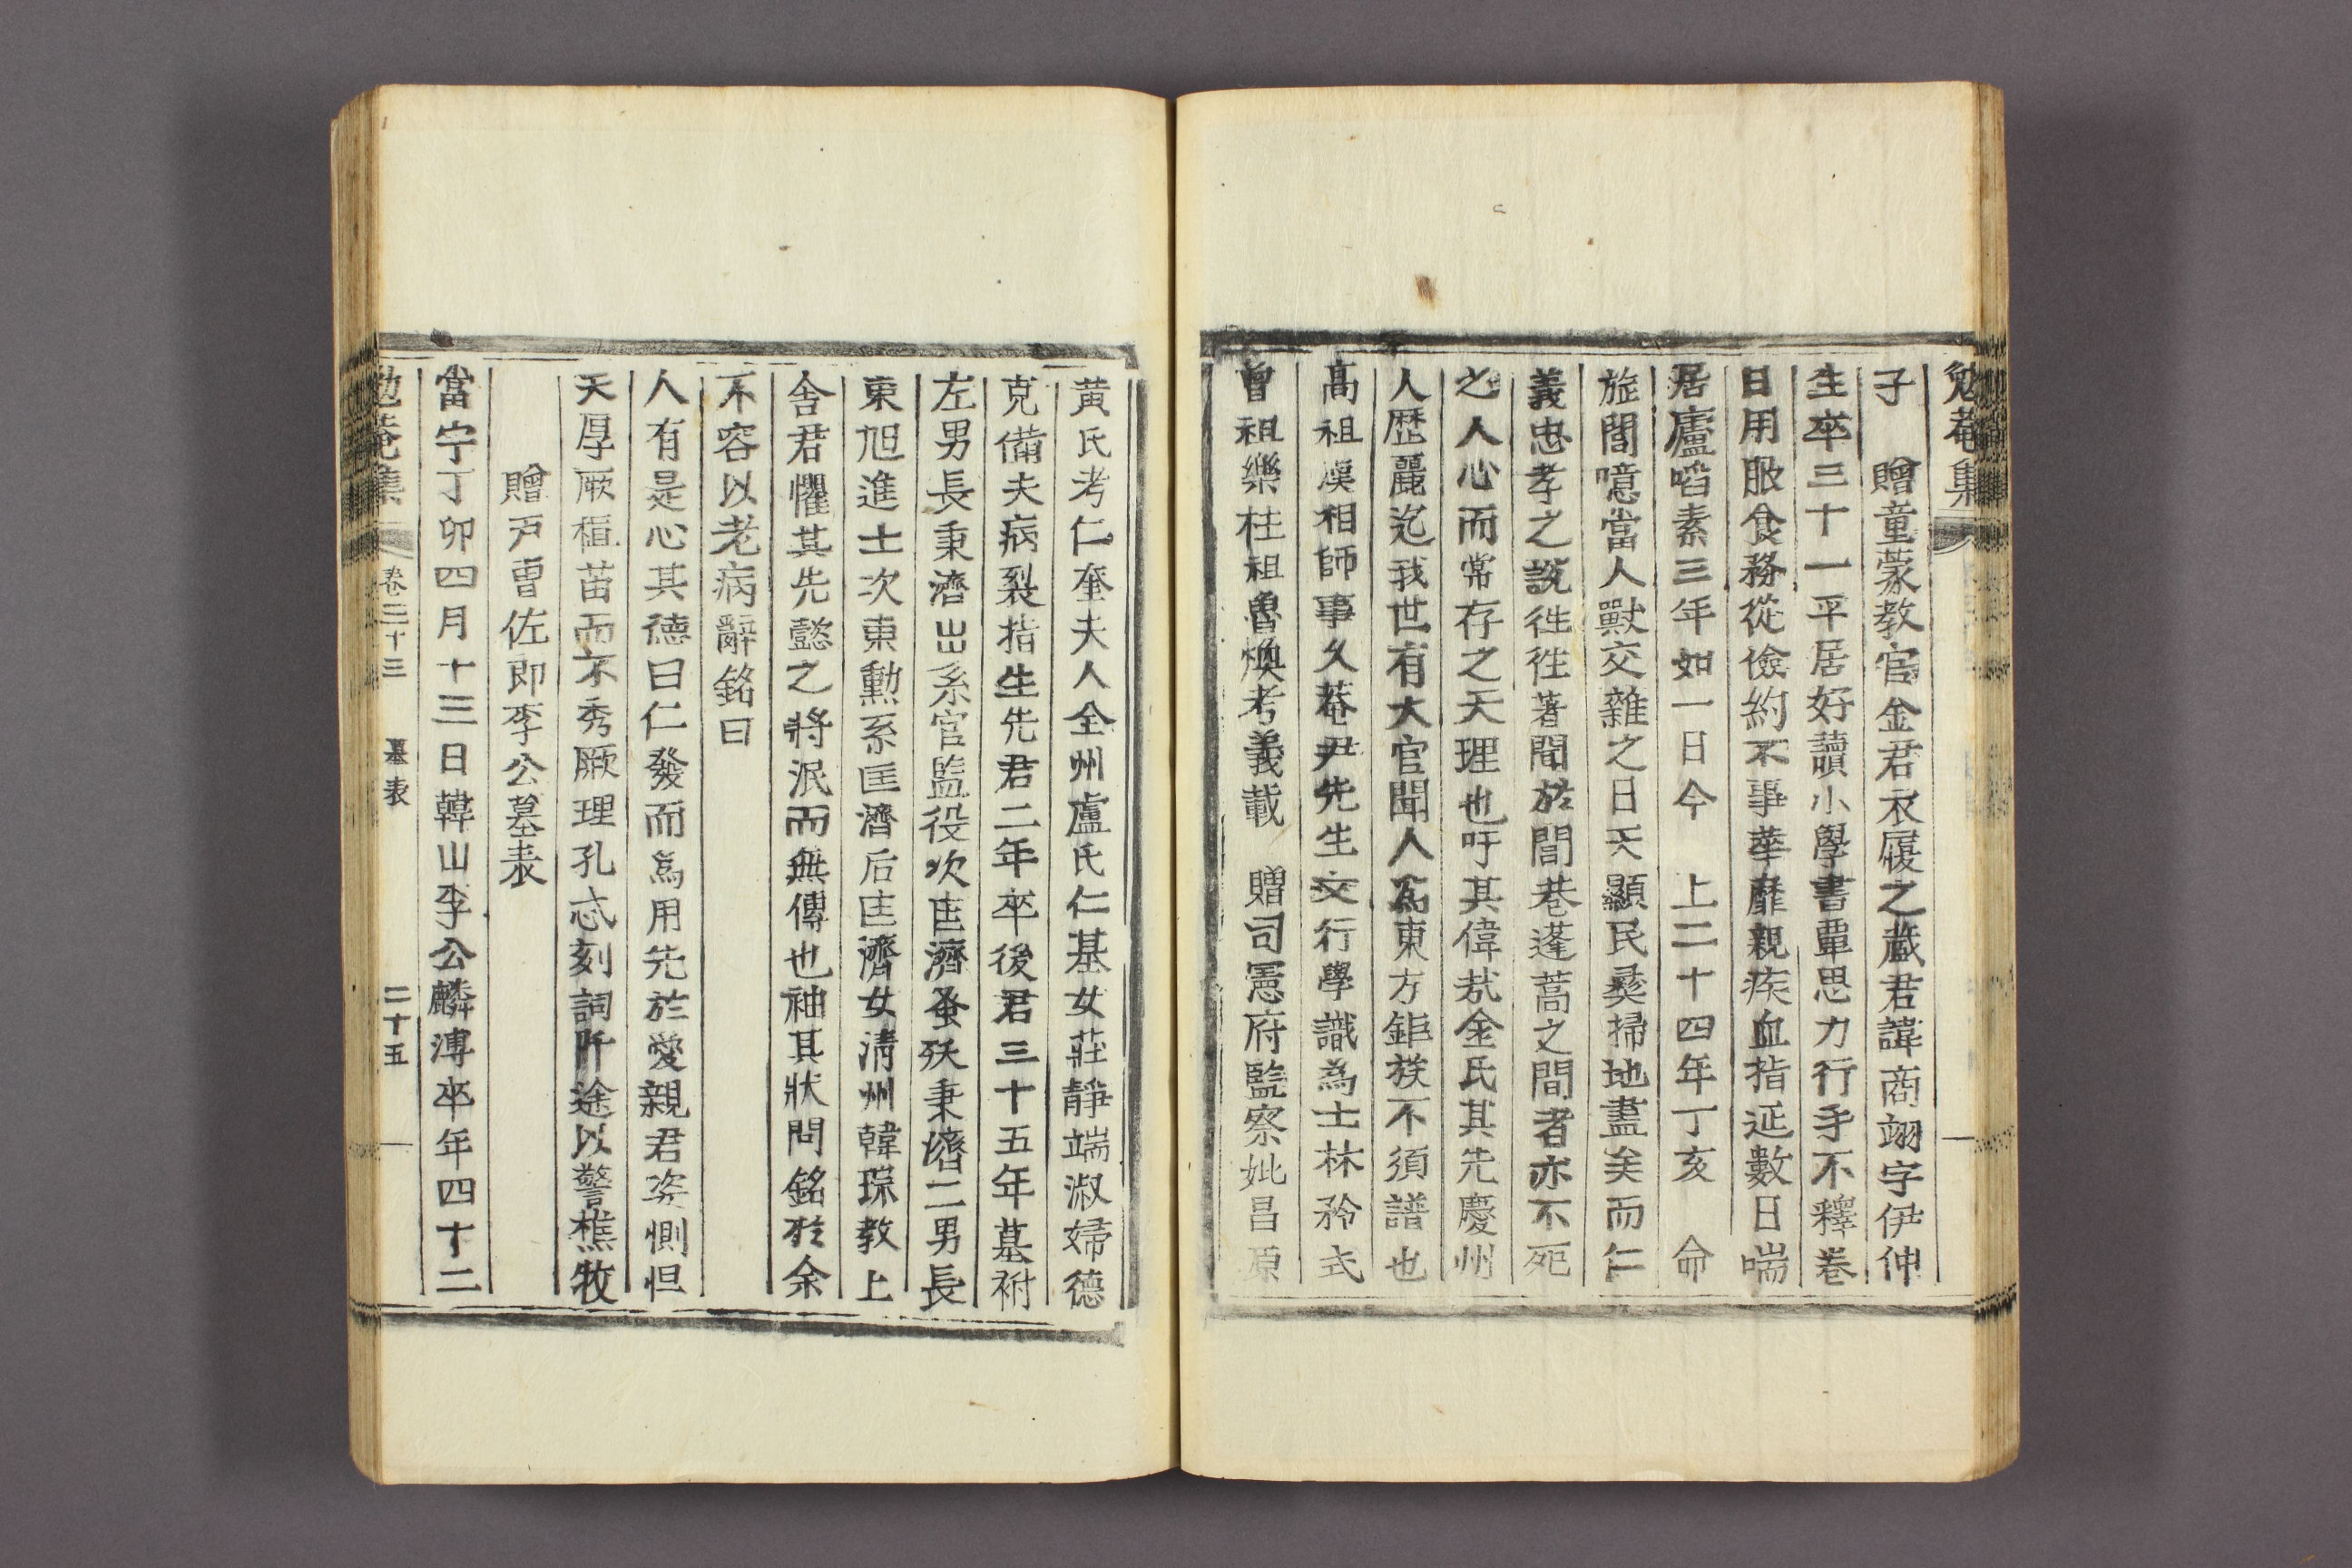 勉菴集
子　贈童蒙敎官金君衣履之藏君諱商翊字伊仲
生卒三十一平居好讀小學書覃思力行手不釋卷
日用服食務從儉約不事華靡親疾血指延數日喘
居廬啗素三年如一日今　上二十四年丁亥　命
旌閭噫當人獸交雜之日天顯民彛掃地盡矣而仁
義忠孝之說徃徃著聞於閭巷蓬蒿之間者亦不死
之人心而常存之天理也吁其偉哉金氏其先慶州
人歷麗迄我世有大官聞人爲東方鉅族不須譜也
高祖漢相師事久菴尹先生文行學識爲士林矜式
曾祖樂柱祖魯煥考義載　贈司憲府監察妣昌原
黃氏考仁奎夫人全州盧氏仁基女莊靜端淑婦德
克備夫病裂指生先君二年卒後君三十五年墓祔
左男長秉濟出系官監役次匡濟蚤殀秉濟二男長
東旭進士次東勳系匡濟后匡濟女淸州韓琮敎上
舍君懼其先懿之將泯而無傳也袖其狀問銘於余
不容以老病辭銘曰
人有是心其德曰仁發而爲用先於愛親君姿惻怛
天厚厥植苗而不秀厥理孔忒刻詞阡途以警樵牧
贈戶曹佐郎李公墓表
當宁丁卯四月十三日韓山李公麟溥卒年四十二
勉菴集　卷三十三　墓表　二十五